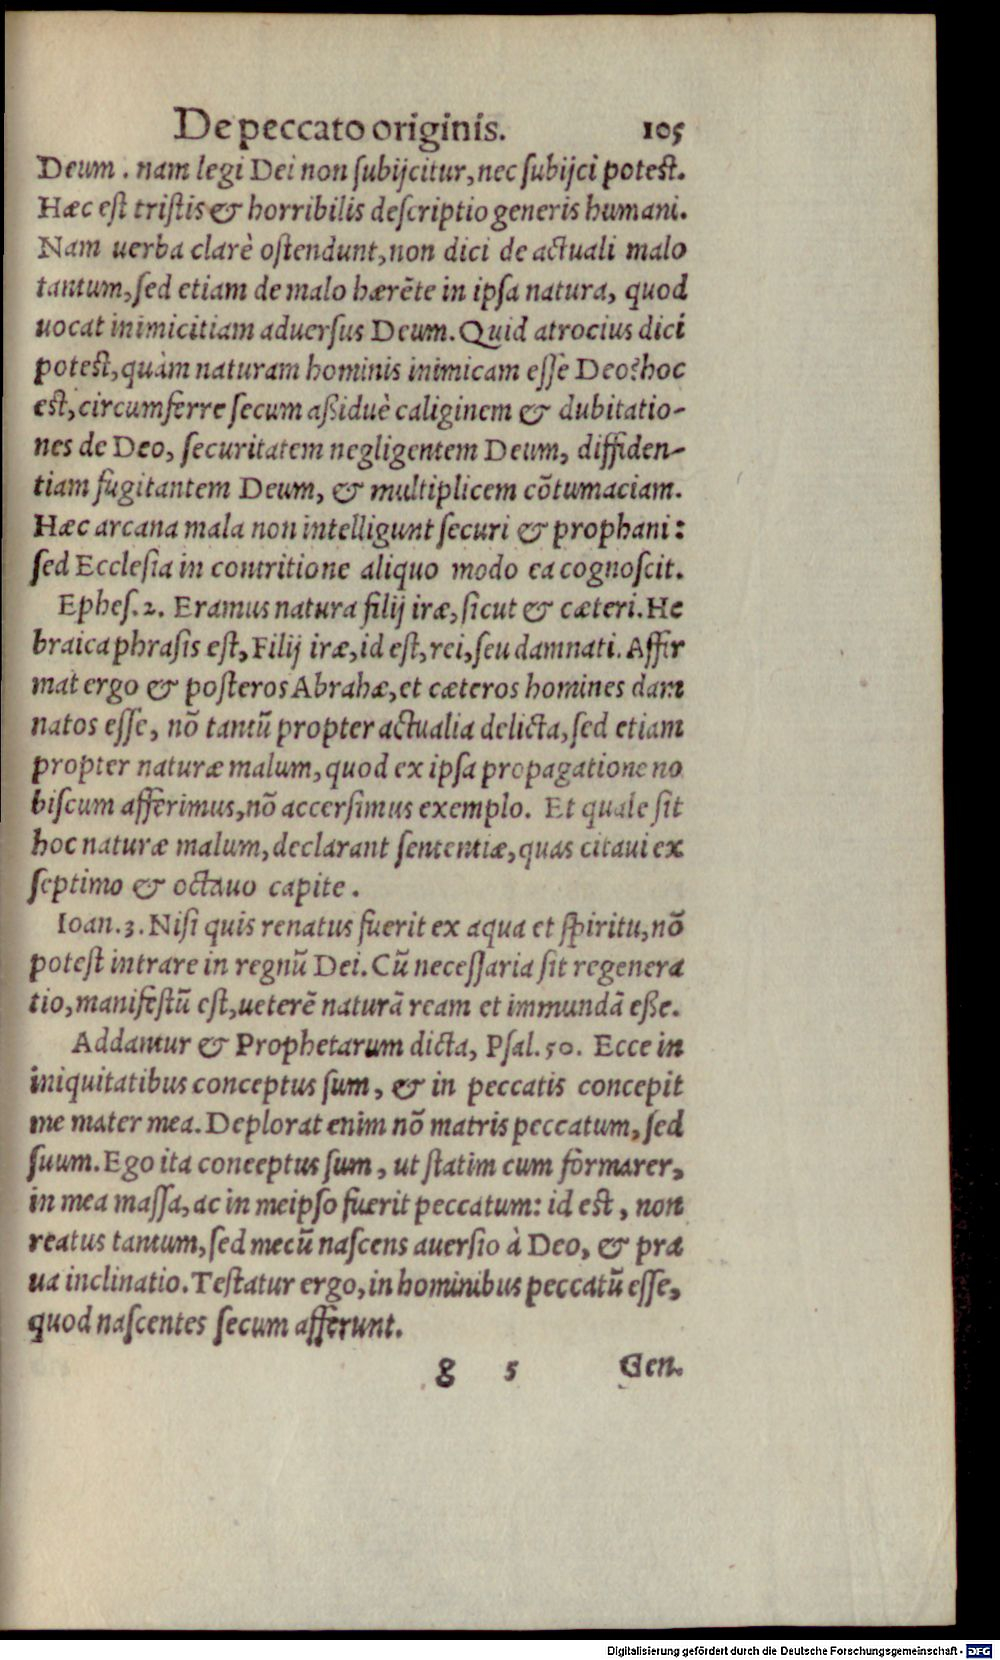 De peccato originis. 105
Deum . nam legi Dei non ſubijcitur, nec ſubijci potest.
Hæc eſt triſtis & horribilis deſcriptio generis humani.
Nam uerba clarè oſtendunt, non dici de actuali malo
tantum, ſed etiam de malo hærẽte in ipſa natura, quod
uocat inimicitiam aduerſus Deum. Quid atrocius dici
potest, quàm naturam hominis inimicam eſſe Deo? hoc
est, circumferre ſecum aßiduè caliginem & dubitatio-
nes de Deo, ſecuritatem negligentem Deum, diffiden-
tiam fugitantem Deum, & multiplicem cõtumaciam.
Hæc arcana mala non intelligunt ſecuri & prophani:
ſed Eccleſia in contritione aliquo modo ea cognoſcit.
Epheſ. 2. Eramus natura filij iræ, ſicut & cæteri. He
braica phraſis eſt, Filij iræ, id eſt, rei, ſeu damnati. Affir
mat ergo & poſteros Abrahæ, et cæteros homines dam
natos eſſe, nõ tantũ propter actualia delicta, ſed etiam
propter naturæ malum, quod ex ipſa propagatione no
biſcum afferimus, nõ accerſimus exemplo. Et quale ſit
hoc naturæ malum, declarant ſententiæ, quas citaui ex
ſeptimo & octauo capite.
Ioan. 3. Niſi quis renatus fuerit ex aqua et ſpiritu, nõ
poteſt intrare in regnũ Dei. Cũ neceſſaria ſit regenera
tio, manifeſtũ eſt, ueterẽ naturã ream et immundã eße.
Addantur & Prophetarum dicta, Pſal. 50. Ecce in
iniquitatibus conceptus ſum, & in peccatis concepit
me mater mea. Deplorat enim nõ matris peccatum, ſed
ſuum. Ego ita conceptus ſum, ut ſtatim cum formarer,
in mea maſſa, ac in meipſo fuerit peccatum: id est, non
reatus tantum, ſed mecũ naſcens auerſio à Deo, & pra
ua inclinatio. Teſtatur ergo, in hominibus peccatũ eſſe,
quod naſcentes ſecum afferunt.
g 5 Gen.
Digitalisierung gefördert durch die Deutsche Forschungsgemeinschaft - DFG